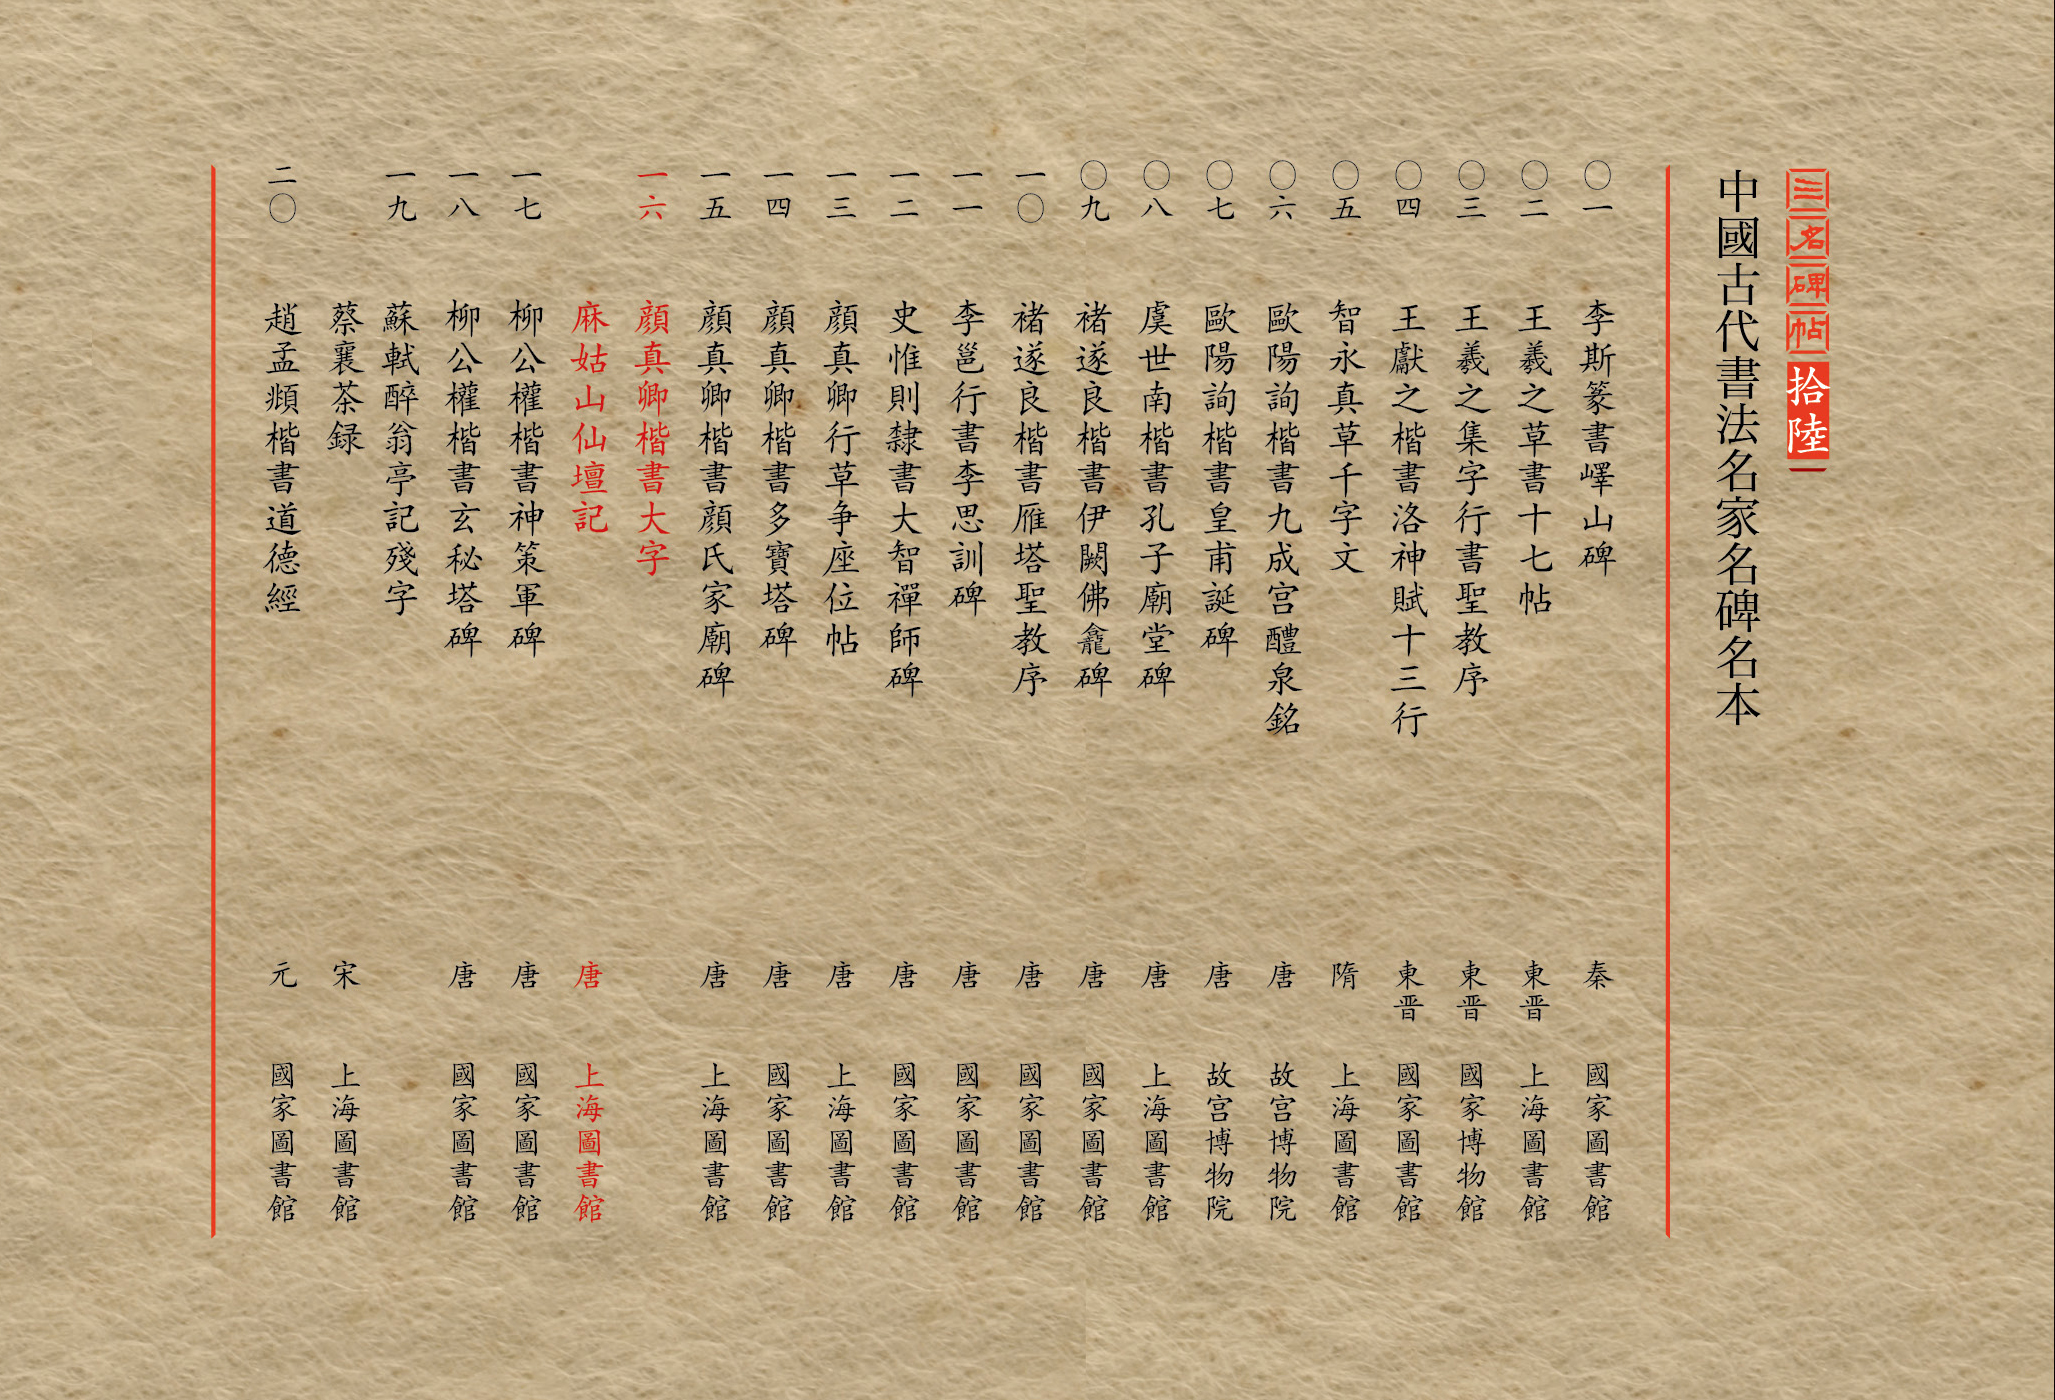 三名碑帖拾陸
中國古代書法名家名碑名本
〇一 李斯篆書嶧山碑 秦 國家圖書館
〇二 王羲之草書十七帖 東晋 上海圖書館
〇三 王羲之集字行書聖教序 東晋 國家博物館
〇四 王獻之楷書洛神賦十三行 東晋 國家圖書館
〇五 智永真草千字文 隋 上海圖書館
〇六 歐陽詢楷書九成宫醴泉銘 唐 故宫博物院
〇七 歐陽詢楷書皇甫誕碑 唐 故宫博物院
〇八 虞世南楷書孔子廟堂碑 唐 上海圖書館
〇九 褚遂良楷書伊闕佛龕碑 唐 國家圖書館
一〇 褚遂良楷書雁塔聖教序 唐 國家圖書館
一一 李邕行書李思訓碑 唐 國家圖書館
一二 史惟則隸書大智禪師碑 唐 國家圖書館
一三 顔真卿行草争座位帖 唐 上海圖書館
一四 顔真卿楷書多寶塔碑 唐 國家圖書館
一五 顔真卿楷書顔氏家廟碑 唐 上海圖書館
一六 顔真卿楷書大字
麻姑山仙壇記 唐 上海圖書館
一七 柳公權楷書神策軍碑 唐 國家圖書館
一八 柳公權楷書玄秘塔碑 唐 國家圖書館
一九 蘇軾醉翁亭記殘字
蔡襄茶録 宋 上海圖書館
二〇 趙孟頫楷書道德經 元 國家圖書館